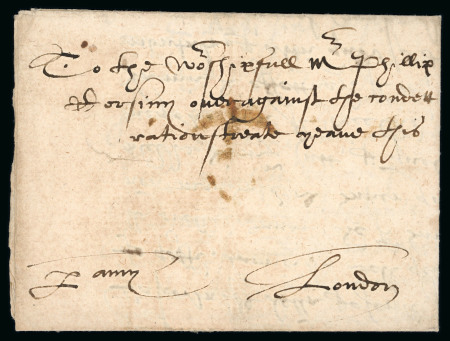 To the Worshipfull Mr Phillip
Corsinij over against the condett
ratiou streate geave this
London